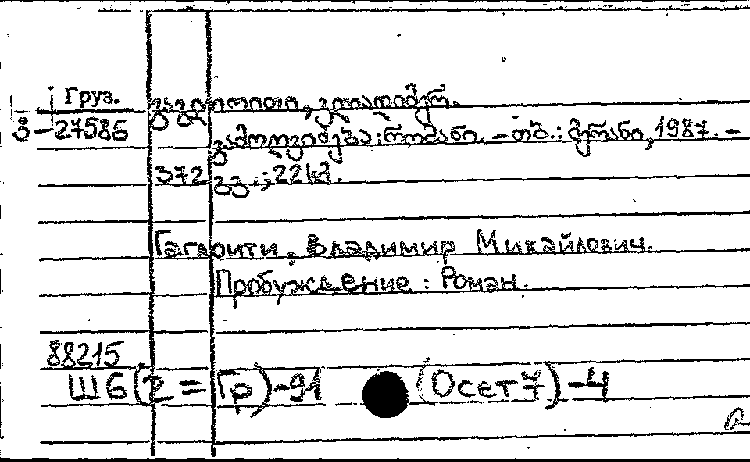 Груз.
3-27586
გაგლოითი, ვლადიმერ.
გამოღვიძება: რომანი. – თბ.: მერანი, 1987. –
372 გვ.; 22 სმ.
Гаглоити, Владимир Михайлович.
Пробуждение: Роман.
88215
Ш6(2=Гр)-91 (Осет7)-4